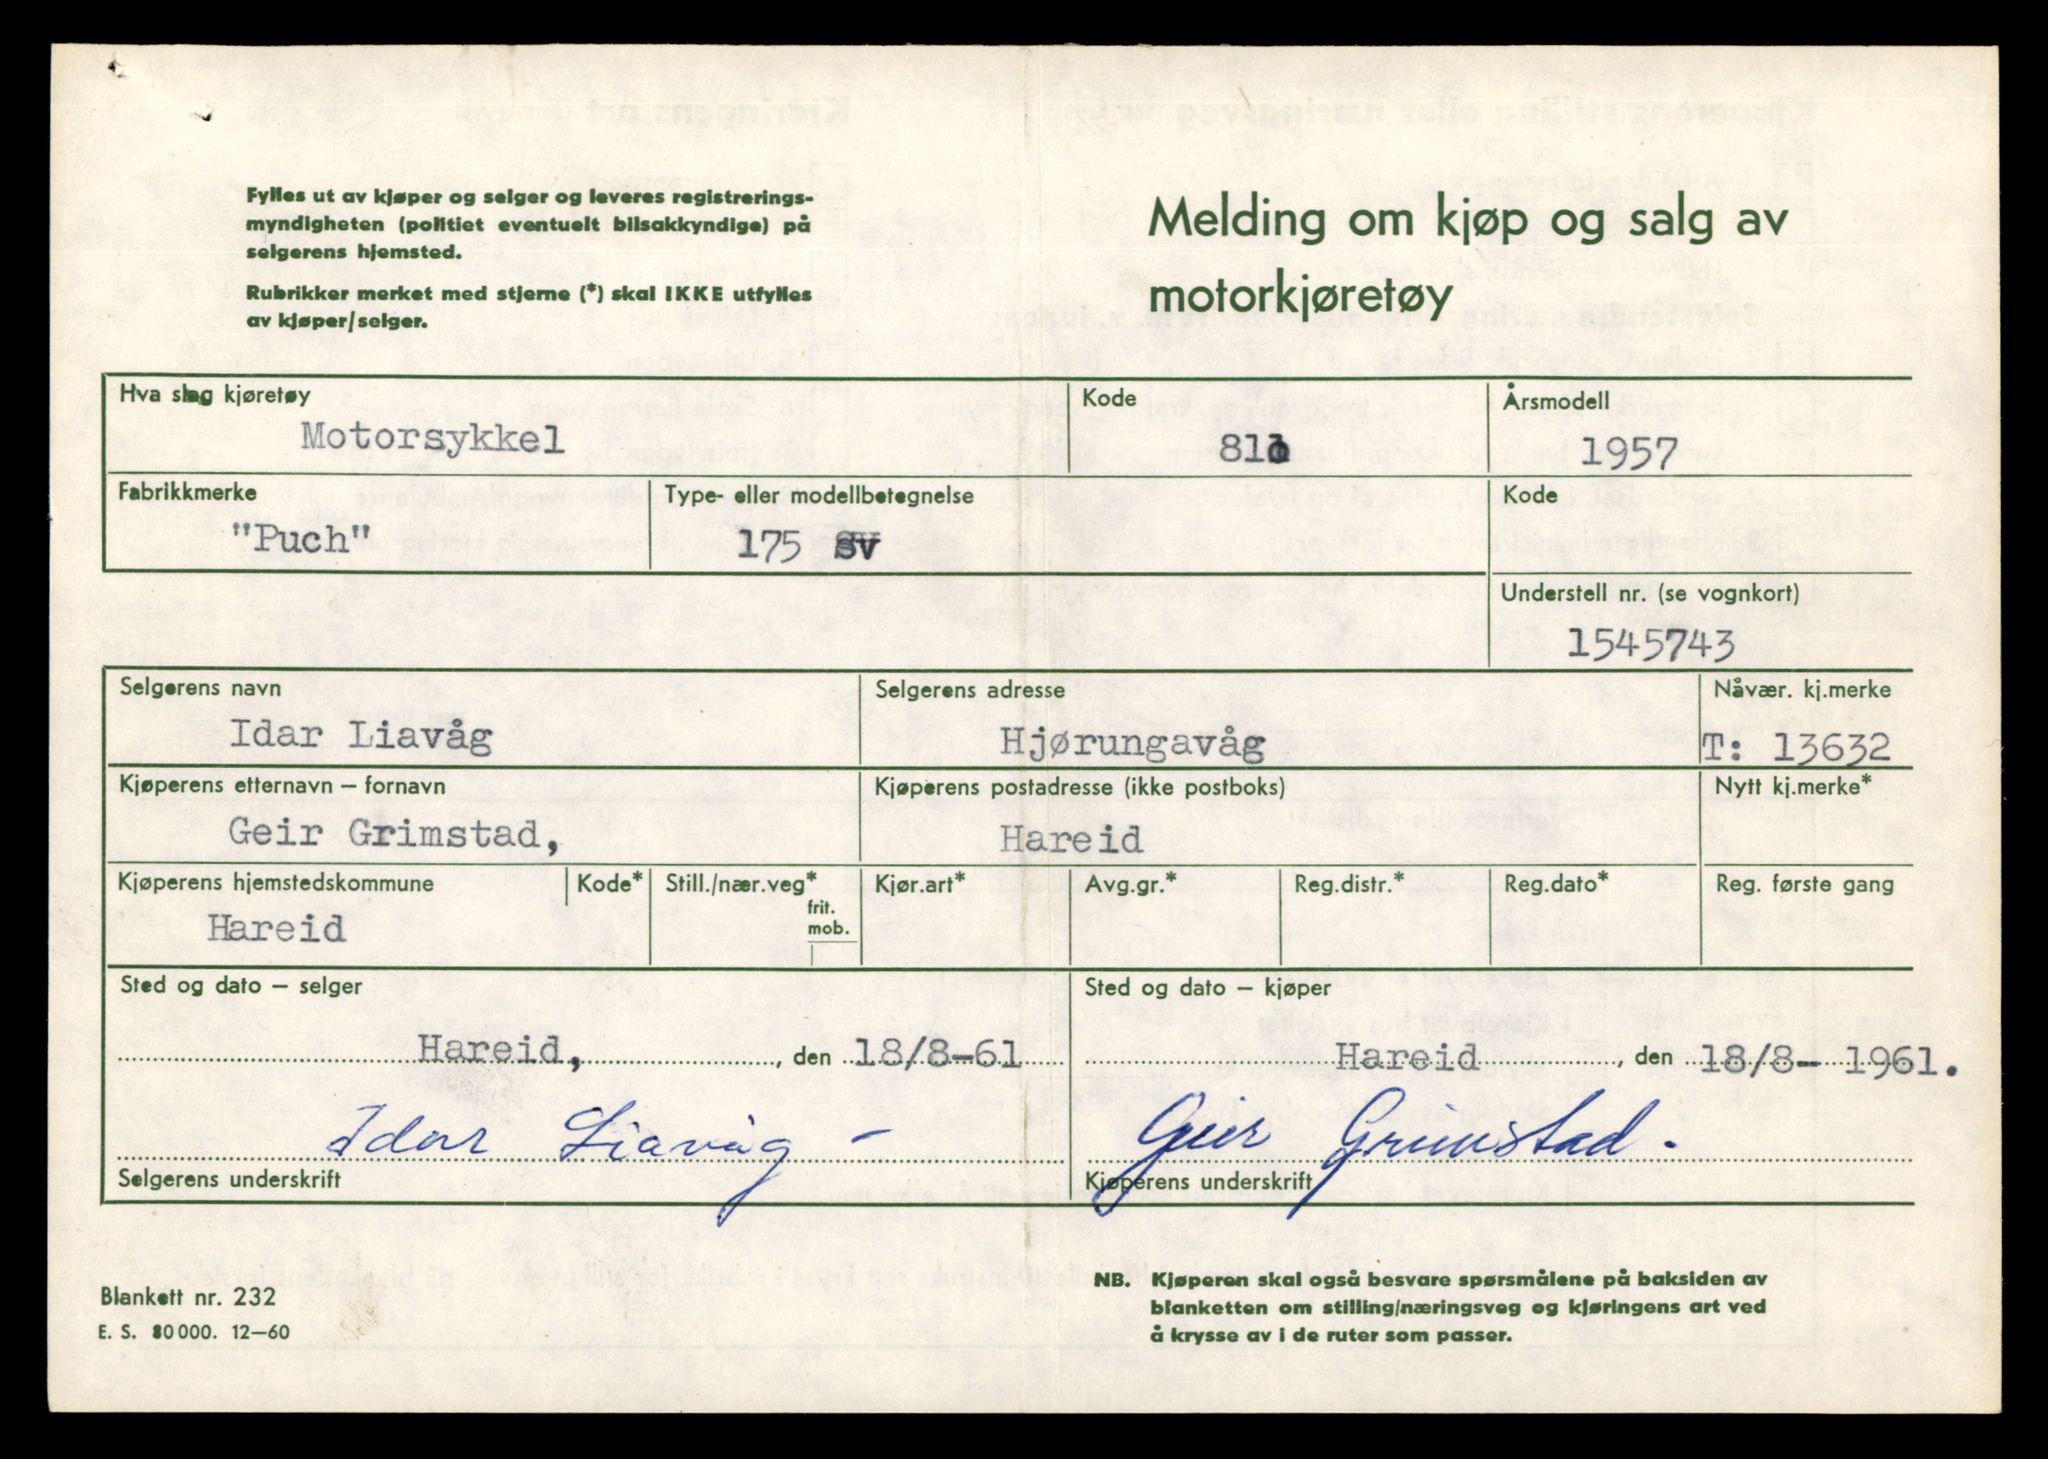 Fylles ut av kjøper og selger og leveres registrerings-
myndigheten (politiet eventuelt bilsakkyndige) på
selgerens hjemsted.
Rubrikker merket med stjerne (*) skal IKKE utfylles
av kjøper/selger.
Melding om kjøp og salg av
motorkjøretøy
Hva slag kjøretøy
Motorsykkel
Kode
Årsmodell
1957
Fabrikkmerke
"Puch"
Type- eller modellbetegnelse
175 SV
Kode
Understell nr. (se vognkort)
1545743
Selgerens navn
Idar Liavåg
Selgerens adresse
Hjørungavåg
Nåvær. kj.merke
T: 13632
Kjøperens etternavn – fornavn
Geir Grimstad,
Kjøperens postadresse (ikke postboks)
Hareid
Nytt kj.merke*
Kjøperens hjemstedskommune
Hareid
Kode*
Still./nær.veg*
frit.
mob.
Kjør.art*
Avg.gr.*
Reg.distr.*
Reg.dato*
Reg. første gang
Sted og dato – selger
Hareid, , den 18/8-61
Idar Liavåg –
Selgerens underskrift
Sted og dato – kjøper
Hareid , den 18/8- 1961.
Geir Grimstad.
Kjøperens underskrift
Blankett nr. 232
E. S. 80 000. 12–60
NB. Kjøperen skal også besvare spørsmålene på baksiden av
blanketten om stilling/næringsveg og kjøringens art ved
å krysse av i de ruter som passer.